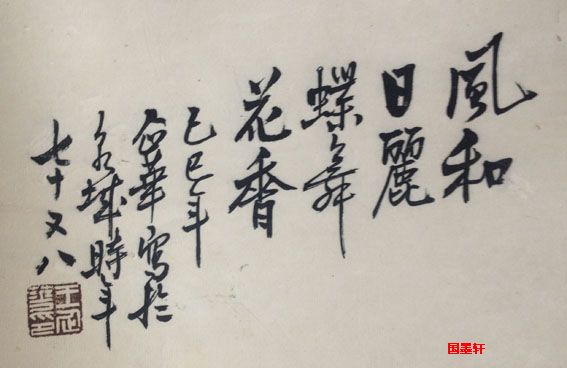 風和
日麗
蝶舞
花香
己巳年
企華寫於
泉城時年
七十又八
王企華印
国墨轩